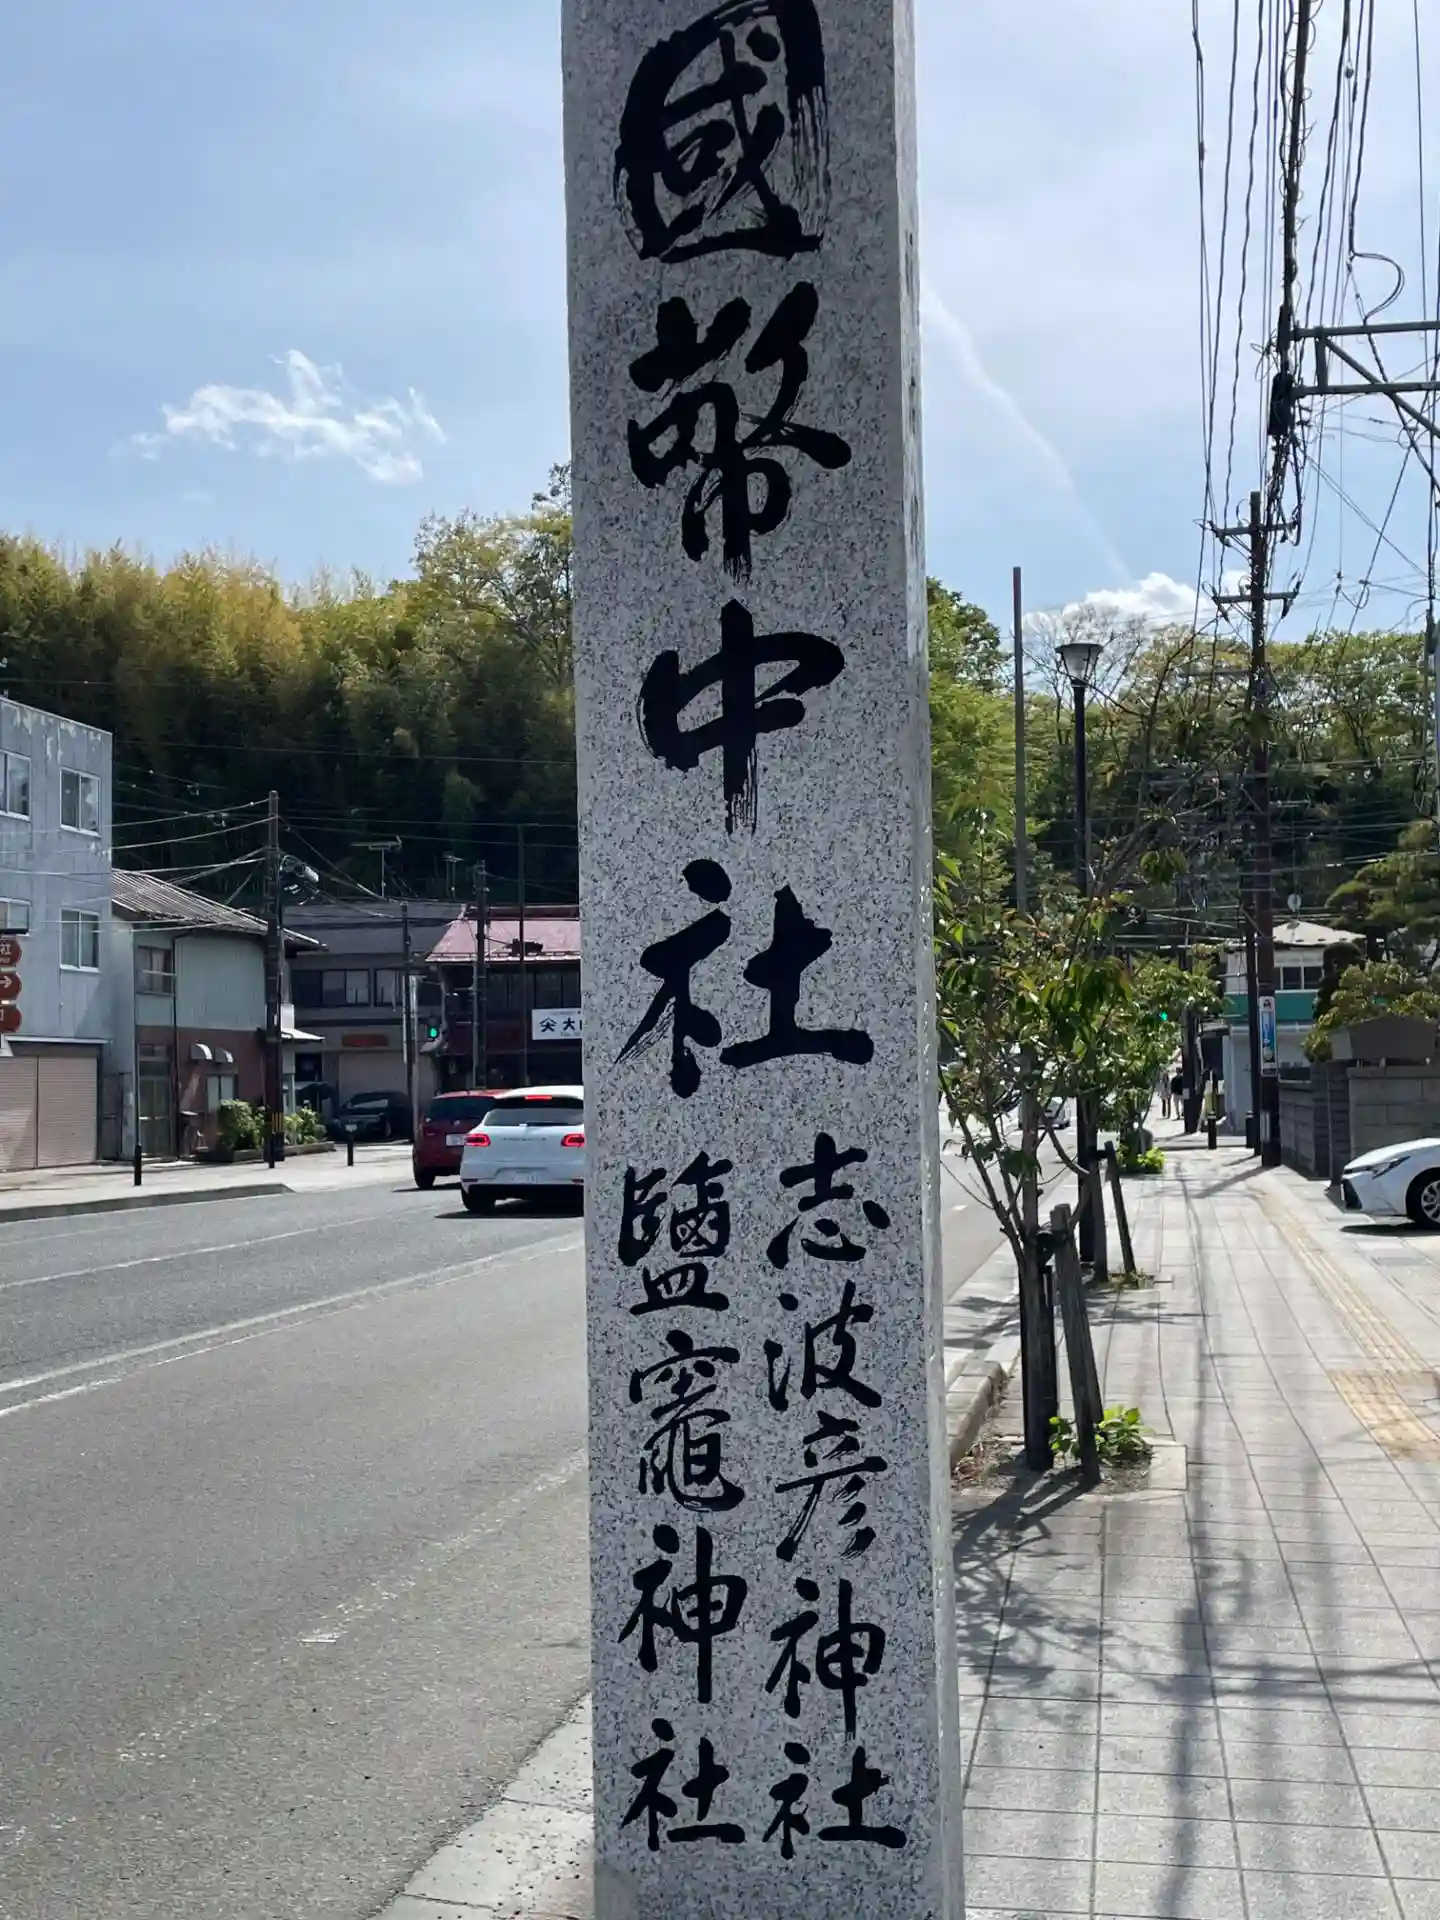 國幣中社
志波彦神社
鹽竈神社
大
社